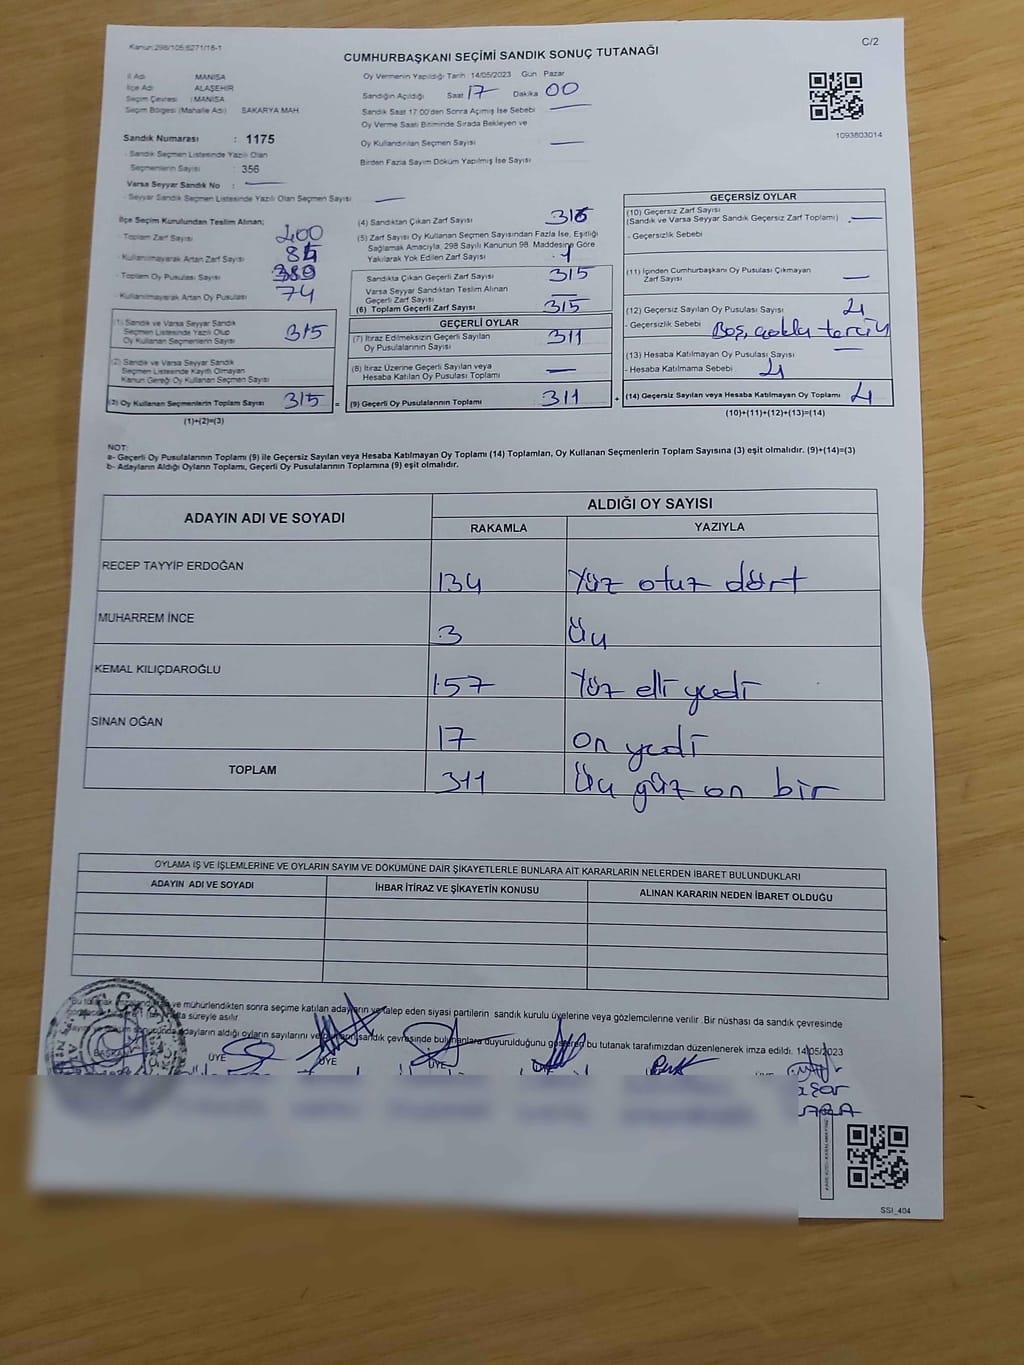 Kanun:298/105;6271/18-1
C/2
CUMHURBAŞKANI SEÇİMİ SANDIK SONUÇ TUTANAĞI
İl Adı MANİSA
İlçe Adı ALAŞEHİR
Seçim Çevresi : MANİSA
Seçim Bölgesi (Mahalle Adı) SAKARYA MAH
Sandık Numarası : 1175
- Sandık Seçmen Listesinde Yazılı Olan
Seçmenlerin Sayısı : 356
Varsa Seyyar Sandık No : —
- Seyyar Sandık Seçmen Listesinde Yazılı Olan Seçmen Sayısı —
Oy Vermenin Yapıldığı Tarih 14/05/2023 Gün Pazar
Sandığın Açıldığı Saat 17 Dakika 00
Sandık Saat 17:00'den Sonra Açımış İse Sebebi —
Oy Verme Saati Bitiminde Sırada Bekleyen ve
Oy Kullandırılan Seçmen Sayısı —
Birden Fazla Sayım Döküm Yapılmış İse Sayısı —
1093803014
İlçe Seçim Kurulundan Teslim Alınan;
- Toplam Zarf Sayısı 400
- Kullanılmayarak Artan Zarf Sayısı
- Toplam Oy Pusulası Sayısı 389
- Kullanılmayarak Artan Oy Pusulası 74
(1) Sandık ve Varsa Seyyar Sandık
Seçmen Listesinde Yazılı Olup
Oy Kullanan Seçmenlerin Sayısı 315
(2) Sandık ve Varsa Seyyar Sandık
Seçmen Listesinde Kayıtlı Olmayan
Kanun Gereği Oy Kullanan Seçmen Sayısı
(3) Oy Kullanan Seçmenlerin Toplam Sayısı 315 =
(1)+(2)=(3)
(4) Sandıktan Çıkan Zarf Sayısı 316
(5) Zarf Sayısı Oy Kullanan Seçmen Sayısından Fazla İse, Eşitliği
Sağlamak Amacıyla, 298 Sayılı Kanunun 98. Maddesine Göre
Yakılarak Yok Edilen Zarf Sayısı 1
Sandıkta Çıkan Geçerli Zarf Sayısı 315
Varsa Seyyar Sandıktan Teslim Alınan
Geçerli Zarf Sayısı —
(6) Toplam Geçerli Zarf Sayısı 315
GEÇERLİ OYLAR
(7) İtiraz Edilmeksizin Geçerli Sayılan
Oy Pusulalarının Sayısı 311
(8) İtiraz Üzerine Geçerli Sayılan veya
Hesaba Katılan Oy Pusulası Toplamı —
(9) Geçerli Oy Pusulalarının Toplamı 311 +
GEÇERSİZ OYLAR
(10) Geçersiz Zarf Sayısı
(Sandık ve Varsa Seyyar Sandık Geçersiz Zarf Toplamı) —
- Geçersizlik Sebebi
(11) İçinden Cumhurbaşkanı Oy Pusulası Çıkmayan
Zarf Sayısı —
(12) Geçersiz Sayılan Oy Pusulası Sayısı 4
- Geçersizlik Sebebi Boş, çoklu tercih
(13) Hesaba Katılmayan Oy Pusulası Sayısı —
- Hesaba Katılmama Sebebi 4
(14) Geçersiz Sayılan veya Hesaba Katılmayan Oy Toplamı 4
(10)+(11)+(12)+(13)=(14)
NOT:
a- Geçerli Oy Pusulalarının Toplamı (9) ile Geçersiz Sayılan veya Hesaba Katılmayan Oy Toplamı (14) Toplamları, Oy Kullanan Seçmenlerin Toplam Sayısına (3) eşit olmalıdır. (9)+(14)=(3)
b- Adayların Aldığı Oyların Toplamı, Geçerli Oy Pusulalarının Toplamına (9) eşit olmalıdır.
ADAYIN ADI VE SOYADI
ALDIĞI OY SAYISI
RAKAMLA YAZIYLA
RECEP TAYYİP ERDOĞAN 134 Yüz otuz dört
MUHARREM İNCE 3 Üç
KEMAL KILIÇDAROĞLU 157 Yüz elli yedi
SİNAN OĞAN 17 on yedi
TOPLAM 311 Üç yüz on bir
OYLAMA İŞ VE İŞLEMLERİNE VE OYLARIN SAYIM VE DÖKÜMÜNE DAİR ŞİKAYETLERLE BUNLARA AİT KARARLARIN NELERDEN İBARET BULUNDUKLARI
ADAYIN ADI VE SOYADI İHBAR İTİRAZ VE ŞİKAYETİN KONUSU ALINAN KARARIN NEDEN İBARET OLDUĞU
Bu tutanak ve mühürlendikten sonra seçime katılan adayların ve talep eden siyasi partilerin sandık kurulu üyelerine veya gözlemcilerine verilir. Bir nüshası da sandık çevresinde
süreyle asılır.
adayların aldığı oyların sayılarını ve sandık çevresinde bulunanlara duyurulduğunu gösteren bu tutanak tarafımızdan düzenlenerek imza edildi. 14/05/2023
BAŞKAN ÜYE ÜYE ÜYE
SSI_404